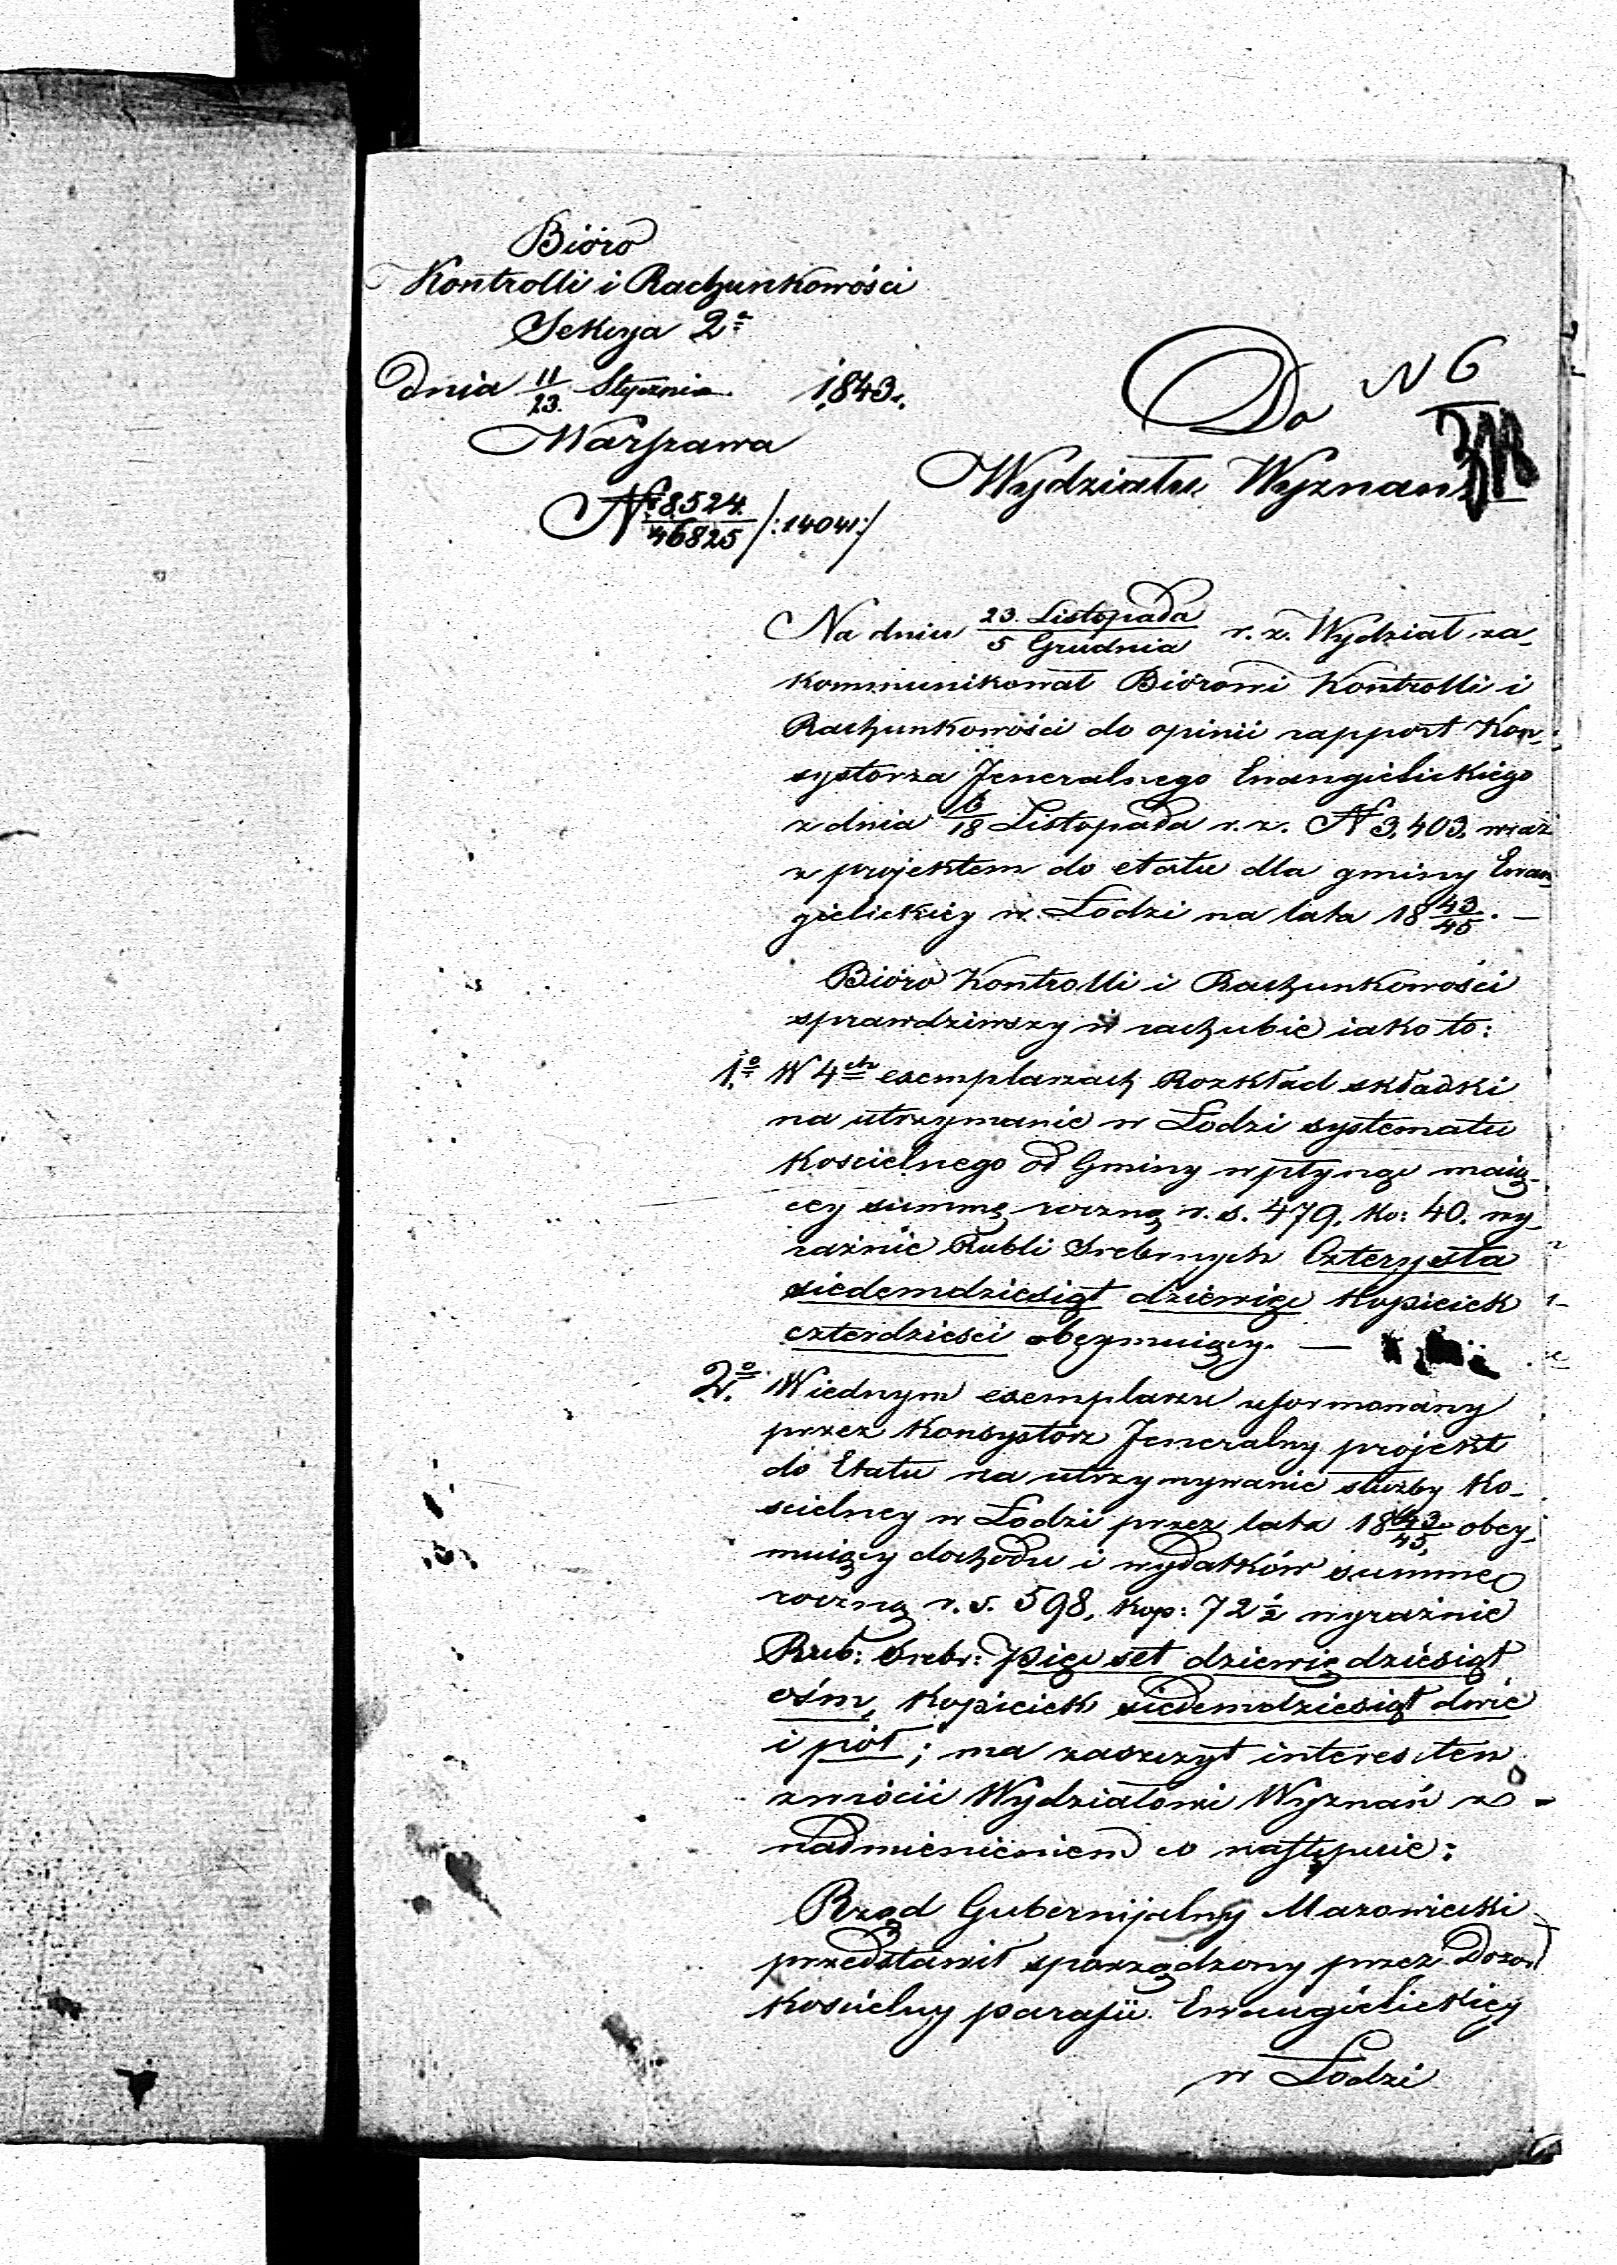 Bióro
Kontrolli i Rachunkowości
Sekcya 2ª
Dnia 11/23. Stycznia 1843r.
Warszawa
N 8524/46825 /:1404:/
N 6
318
Do
Wydziału Wyznań
Na dniu 23. Listopada/5 Grudnia r. z. Wydział za-
kommunikował Biórowi Kontrolli i
Rachunkowości do opinii rapport Kon-
systorza Jeneralnego Ewangielickiego
z dnia 6/18 Listopada r. z. N 3,403. wraz
z projektem do etatu dla gminy Ewan-
gielickiey w Łodzi na lata 18 43/45. —
Bióro Kontrolli i Rachunkowości
sprawdziwszy w rachubie iako to:
1º W 4ch exemplarzach Rozkład składki
na utrzymanie w Łodzi systematu
Kościelnego od Gminy wpłynąć maią-
cy summę roczną r. s. 479, ko: 40. wy-
raźnie Rubli Srebrnych Czterysta
siedemdziesiąt dziewięć Kopieiek
czterdzieści obeymuiący. —
2º W iednym exemplarzu uformowany
przez Konsystorz Jeneralny projekt
do Etatu na utrzymywanie służby Ko-
ścielney w Łodzi przez lata 18 43/45, obey-
muiący dochodu i wydatków summę
roczną r. s. 598, kop: 72 ½ wyraźnie
Rub: Srebr: Pięć set dziewięćdziesiąt
ośm, Kopieiek siedemdziesiąt dwie
i pół; ma zaszczyt interes ten
zwrócić Wydziałowi Wyznań z
nadmienieniem co następuie:
Rząd Gubernijalny Mazowiecki
przedstawił sporządzony przez Dozor
Kościelny parafii Ewangielickiey
w Łodzi